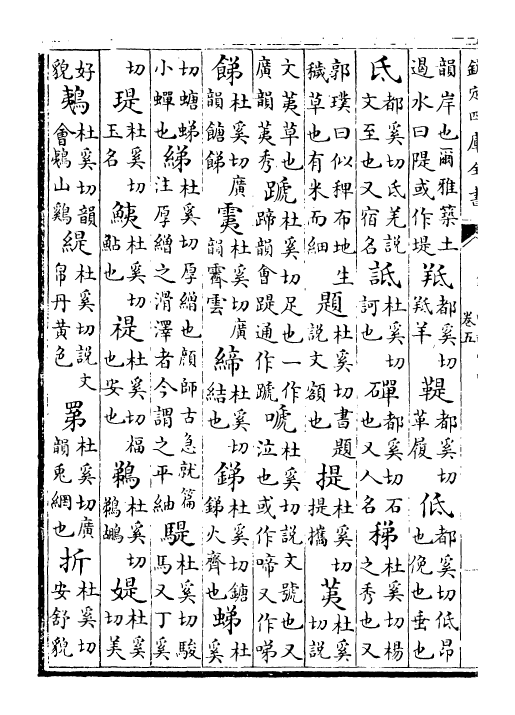 欽定四庫全書
卷五
韻岸也爾雅築土遏水曰隄或作堤 羝都奚切羝羊 鞮都奚切革履 低都奚切低昂也俛也垂也
氐都奚切氐羌説文至也又宿名 詆杜奚切訶也 磾都奚切石也又人名 稊杜奚切楊之秀也又
郭璞曰似稗布地生穢草也有米而細 題杜奚切書題説文額也 提杜奚切提攜 荑杜奚切説
文荑草也廣韻荑秀 蹏杜奚切足也一作蹄韻會踶通作蹏 嗁杜奚切説文號也又泣也或作啼又作㖒
䬾杜奚切廣韻餹䬾 杜奚切廣韻霽雲 締杜奚切結也 銻杜奚切鎕銻火齊也 䗖杜奚
切螗䗖小蟬也 綈杜奚切厚繒也顏師古急就篇注厚繒之滑澤者今謂之平紬 騠杜奚切駿馬又丁奚
切 瑅杜奚切玉名 鮧杜奚切鮎也 禔杜奚切福也安也 鵜杜奚切鵜鶘 媞杜奚切美
好貌 鴺杜奚切韻會鴺山鷄 緹杜奚切説文帛丹黃色 罤杜奚切廣韻兎網也 折杜奚切安舒貌